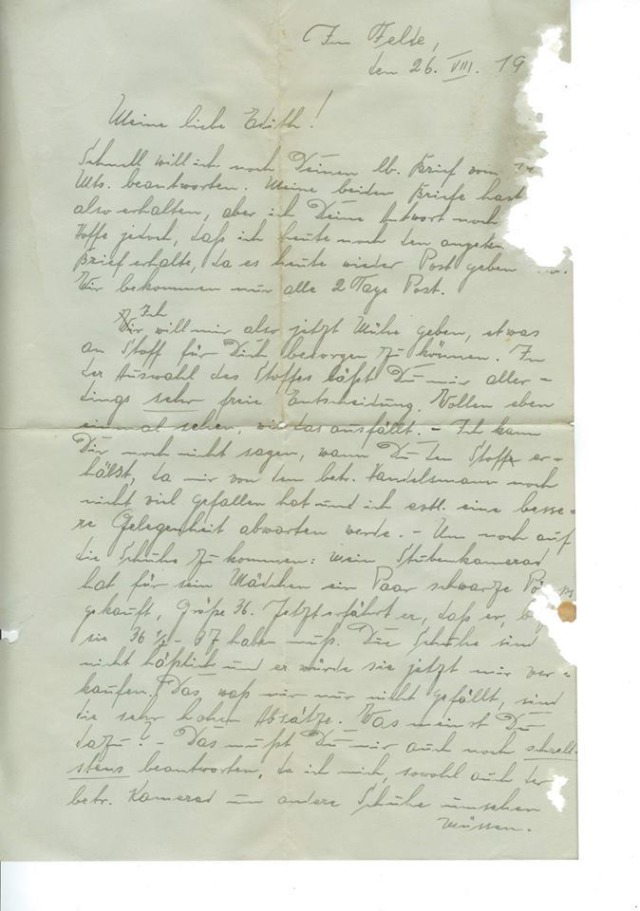 Im Felde,
den 26. VIII. 19
Meine liebe Edith!
Schnell will ich noch Deinen lb. Brief vom
Mts. beantworten. Meine beiden Briefe hast
also erhalten, aber ich Deine Antwort noch
Hoffe jedoch, daß ich heute noch den
Brief erhalte, da es heute wieder Post geben
Wir bekommen nur alle 2 Tage Post.
Ich
Wir will mir also jetzt Mühe geben, etwas
an Stoff für Dich besorgen zu können. In
der Auswahl des Stoffes läßt Du mir aller-
dings sehr freie Entscheidung. Wollen eben
einmal sehen, wie das ausfällt. - Ich kann
Dir noch nicht sagen, wann Du den Stoff er-
hälst, da mir von dem betr. Handelsmann noch
nicht viel gefallen hat und ich evtl. eine besse-
re Gelegenheit abwarten werde. - Um noch auf
die Schuhe zu kommen: mein Stubenkamerad
hat für sein Mädchen ein Paar schwarze
gekauft, Größe 36. Jetzt erfährt er, daß er,
sie 36 ½ - 37 haben muß. Die Schuhe sind
nicht häßlich und er würde sie jetzt mir ver-
kaufen. Das, was mir nur nicht gefällt, sind
die sehr hohen Absätze. Was meinst Du
dazu? - Das mußt Du mir auch noch schnell-
stens beantworten, da ich mich, sowohl auch der
betr. Kamerad um andere Schuhe umsehen
müssen.